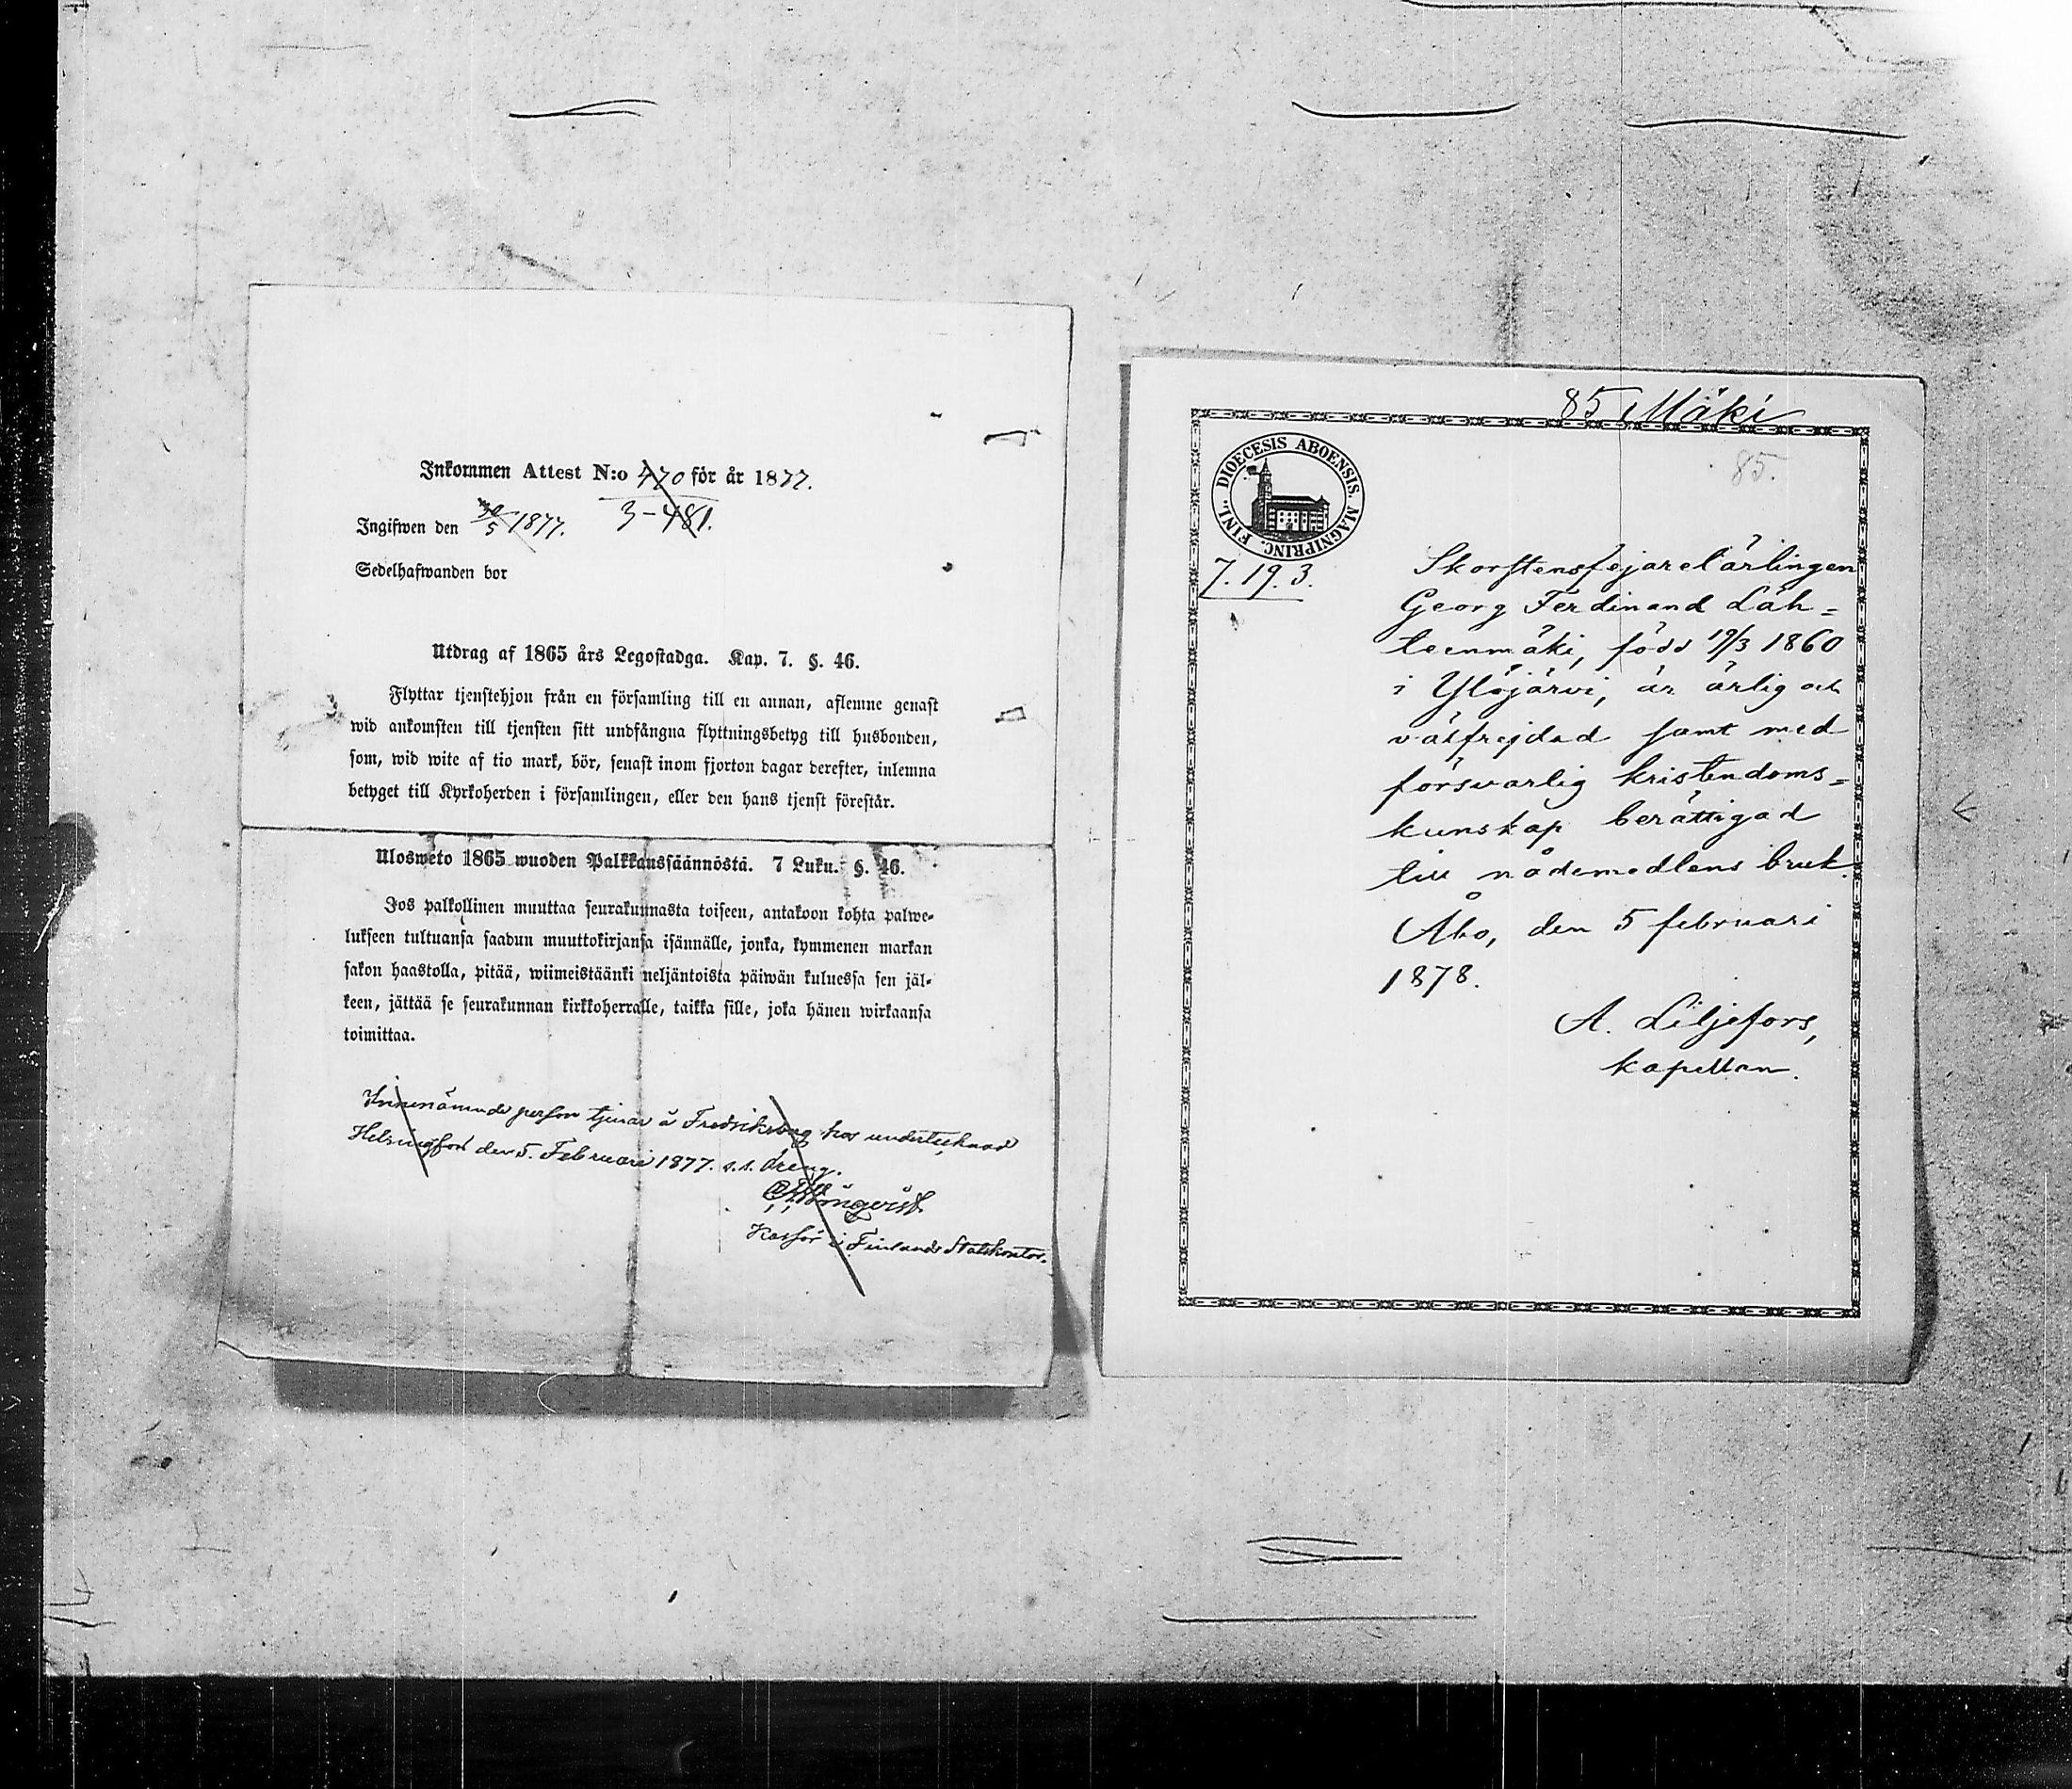 Inkommen Attest N:o 470 för år 1877.
3-481.
Ingifwen den 30/5 1877.
Sedelhafwanden bor
Utdrag af 1865 års Legostadga. Kap. 7. §. 46.
Flyttar tjenstehjon från en församling till en annan, aflemne genast
wid ankomsten till tjensten sitt undfångna flyttningsbetyg till husbonden,
som, wid wite af tio mark, bör, senast inom fjorton dagar derefter, inlemna
betyget till Kyrkoherden i församlingen, eller den hans tjenst förestår.
Ulosweto 1865 wuoden Palkkaussäännöstä. 7 Luku. §. 46.
Jos palkollinen muuttaa seurakunnasta toiseen, antakoon kohta palwe-
lukseen tultuansa saadun muuttokirjansa isännälle, jonka, kymmenen markan
sakon haastolla, pitää, wiimeistäänki neljäntoista päiwän kuluessa sen jäl-
keen, jättää se seurakunnan kirkkoherralle, taikka sille, joka hänen wirkaansa
toimittaa.
Innenämnde person tjenar å Fredriksberg hos undertecknad
Helsingfors den 5. Februari 1877. s.s. dreng.
Kassör i Finlands Statskontor.
85 Mäki
85.
DIOECESIS ABOENSIS. MAGNIPRINC. FINL.
7.19.3.
Skorstensfejarelärlingen
Georg Ferdinand Läh=
teenmäki, född 19/3 1860
i Ylöjärvi, är ärlig och
välfrejdad samt med
försvarlig kristendoms=
kunskap berättigad
till nådemedlens bruk.
Åbo, den 5 februari
1878.
A. Liljefors,
kapellan.